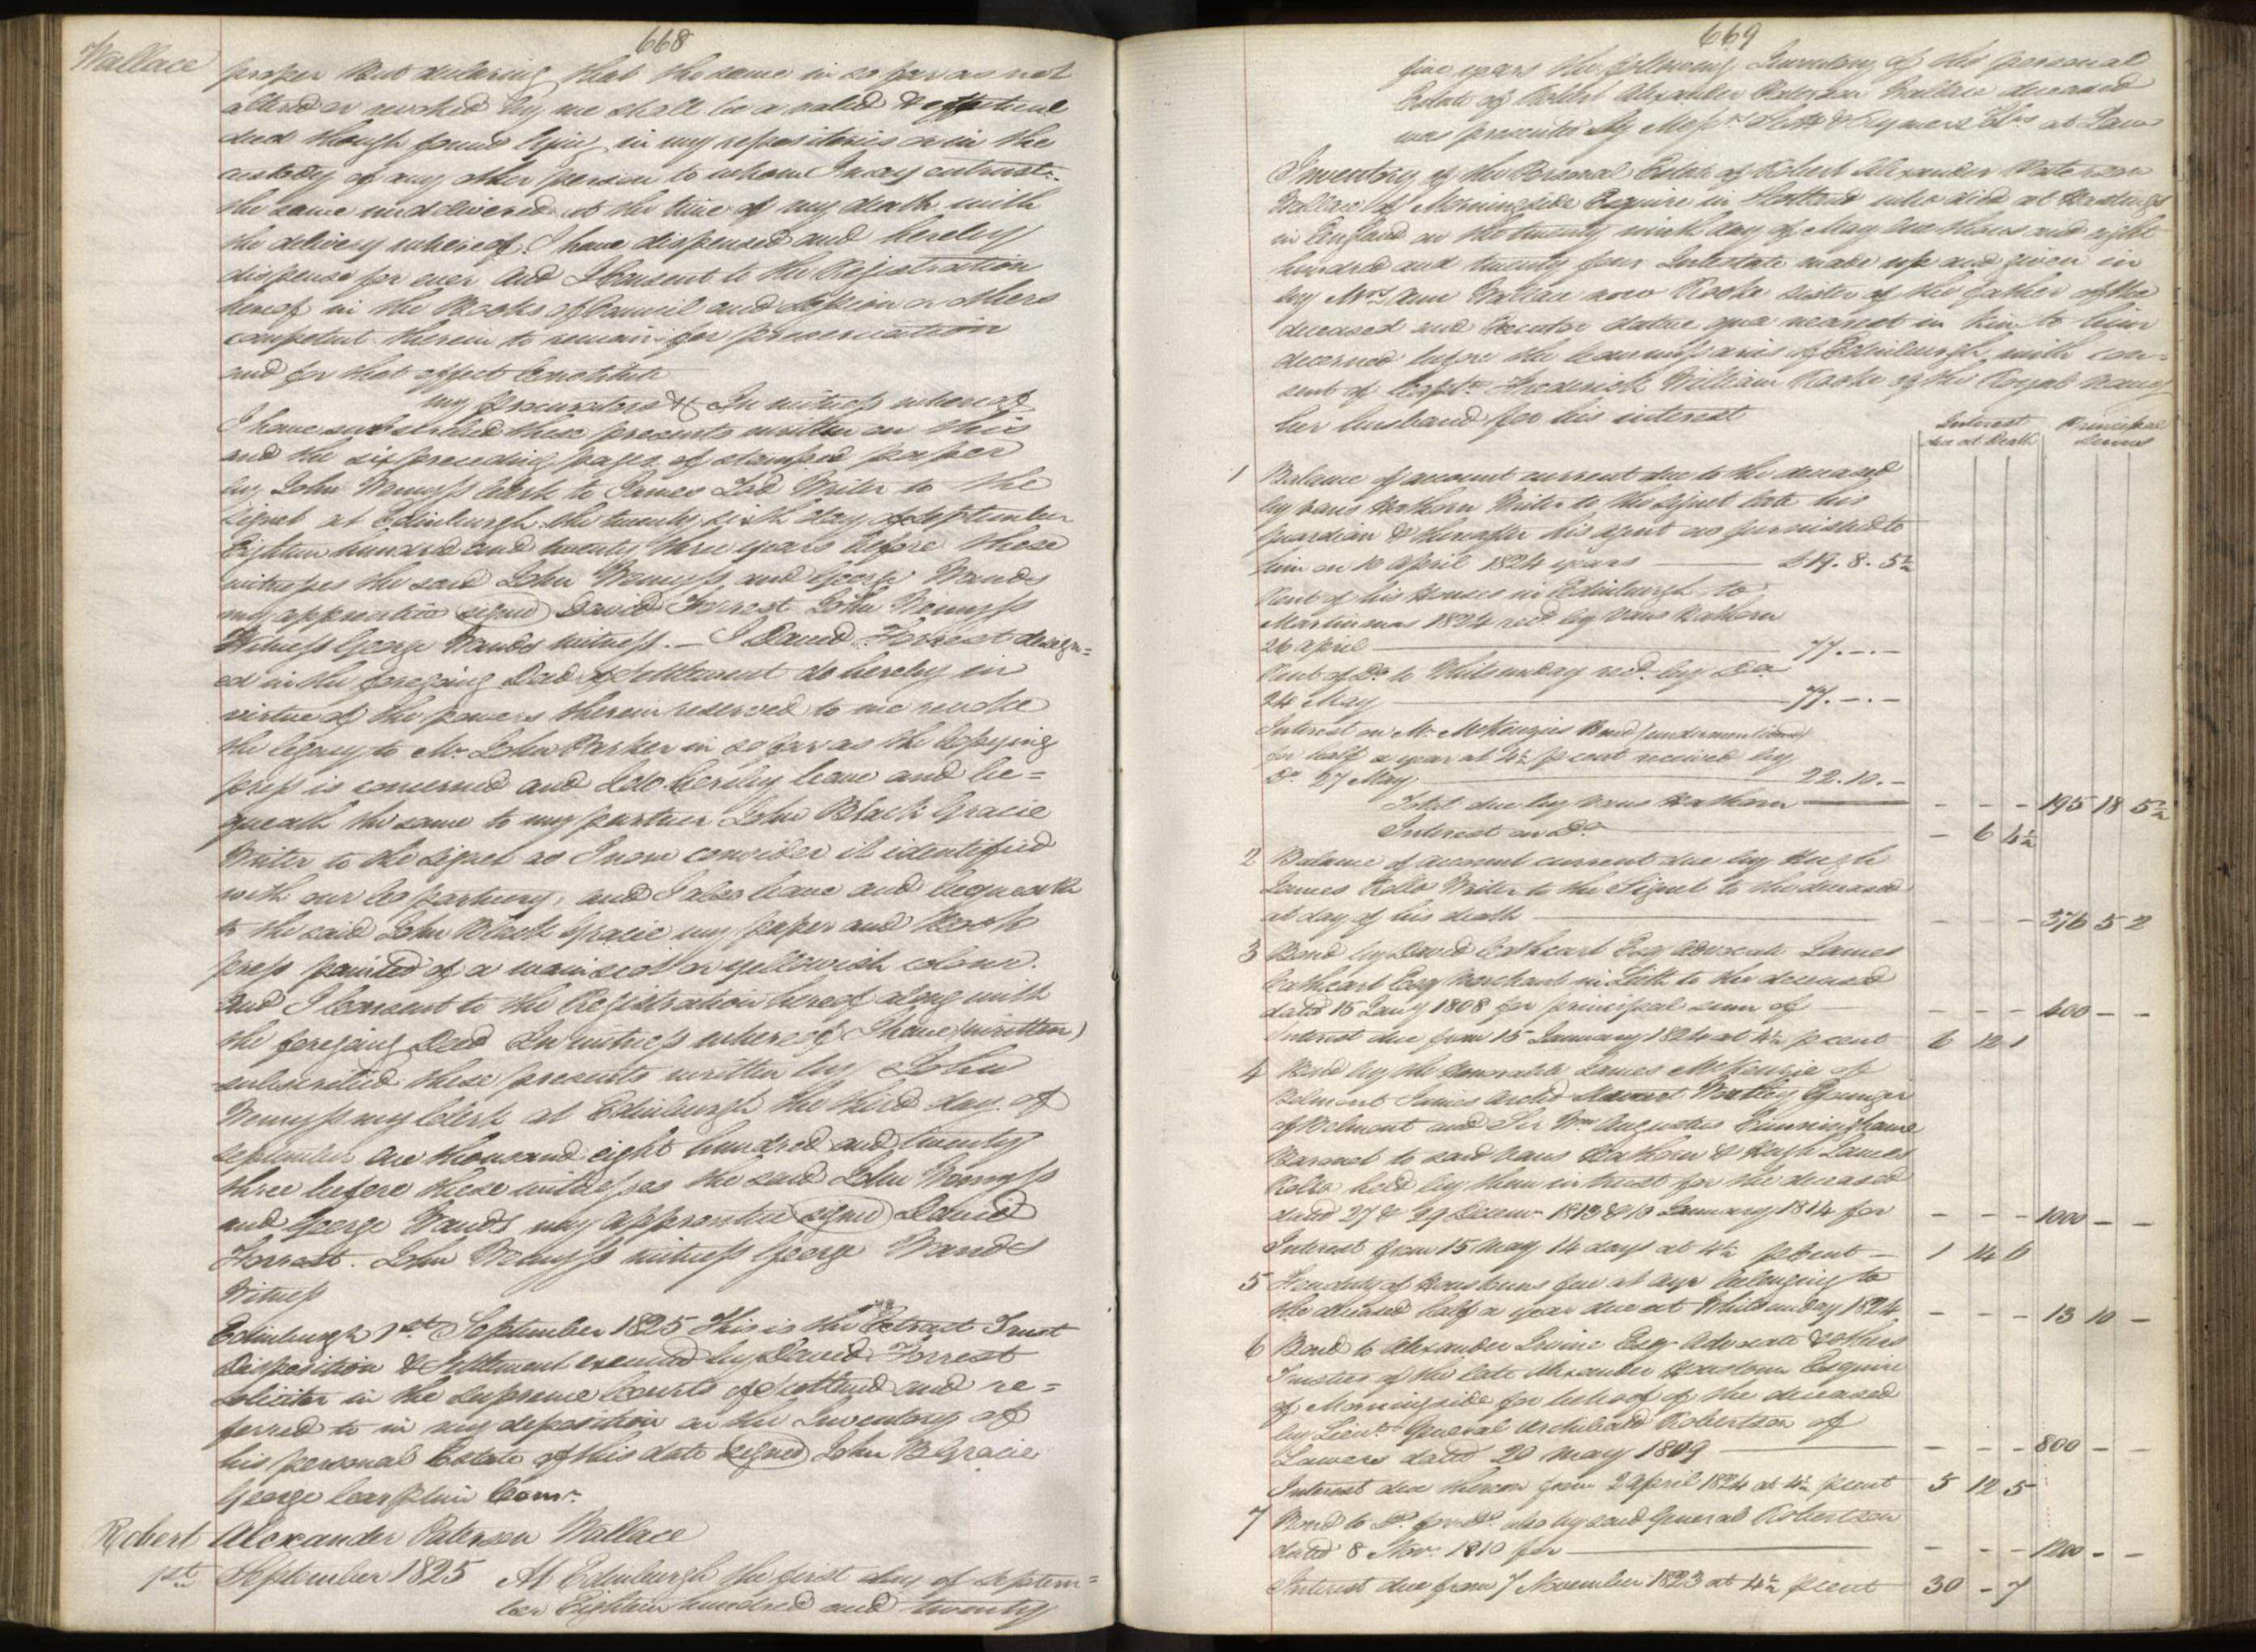 668
Wallace
proper But declaring that the same in so far as not
altered or revoked by me shall be a valid & effectual
deed though found lying in my repositories or in the
custody of any other person to whom I may entrust
the same undelivered at the time of my death with
the delivery whereof I have dispensed and hereby
dispense for ever And I Consent to the Registration
hereof in the Books of Council and Session or others
competent therein to remain for preservation
and for that effect Constitute
my procurators &c In witness whereof
I have subscribed these presents written on this
and the six preceding pages of stamped paper
by John Wemyss Clerk to James Tod Writer to the
Signet at Edinburgh the twenty sixth day of September
Eighteen hundred and twenty three years before these
witnesses the said John Wemyss and George Wands
my apprentice (signed) David Forrest John Wemyss
Witness George Wands witness. - I David Forrest design=
ed in the foregoing Deed of Settlement do hereby in
virtue of the powers therein reserved to me revoke
the legacy to Mr John Parker in so far as the Copying
press is concerned and I do hereby leave and be=
queath the same to my partner John Black Gracie
Writer to the Signet as I now consider it identified
with our Copartnery, and I also leave and bequeath
to the said John Black Gracie my paper and Book
press painted of a wainscot or yellowish colour.
And I Consent to the Registration hereof along with
the foregoing Deed In witness whereof I have (written)
subscribed these presents written by John
Wemyss my Clerk at Edinburgh the third day of
September One thousand eight hundred and twenty
three before these witnesses the said John Wemyss
and George Wands my apprentice (signed) David
Forrest. John Wemyss witness George Wands
Witness
Edinburgh 1st September 1825 This is the Extract Trust
Disposition & Settlement executed by David Forrest
Solicitor in the Supreme Courts of Scotland and re=
ferred to in my deposition on the Inventory of
his personal Estate of this date (signed) John B Gracie
George Carphin Comr.
Robert Alexander Paterson Wallace
1st September 1825 At Edinburgh the first day of Septem=
ber Eighteen hundred and twenty
669
five years the following Inventory of the personal
Estate of Robert Alexander Paterson Wallace deceased
was presented by Messrs Scott & Rymer at Law
Inventory of the Personal Estate of Robert Alexander Paterson
Wallace of Morningside Esquire in Scotland who died at Hastings
in England on the twenty ninth day of May One thousand eight
hundred and twenty four Intestate made up and given in
by Mrs Ann Wallace now Rooke sister of the father of the
deceased and Executor dative qua nearest in Kin to him
decerned before the Commissaries of Edinburgh with con=
sent of Captn Frederick William Rooke of the Royal Navy
her husband for his interest
Interest due at Death Principal Sums
1 Balance of account current due to the deceased
by Vans Hathorn Writer to the Signet late his
guardian & thereafter his agent as furnished to
him on 10 April 1824 years £19.8.5½
Rent of his Houses in Edinburgh to
Martinmas 1824 recd by Vans Hathorn
26 April 77.-.-
Rent of Do to Whitsunday recd by Do
24 May 77.-.-
Interest on Mr McKenzies Bond (undermentioned)
for half a year at 4½ p cent received by
Do 27 May 22.10.-
Total due by Vans Hathorn - - - 195 18 5½
Interest on Do - 6 4½
2 Balance of account current due by Hugh
James Rollo Writer to the Signet to the deceased
at day of his death - - - 376 5 2
3 Bond by David Cathcart Esq Advocate James
Cathcart Esq Merchant in Leith to the deceased
dated 15 Jany 1808 for principal sum of - - - 400 - -
Interest due from 15 January 1824 at 4½ p cent 6 12 1
4 Bond by the Honorable James McKenzie of
Belmont James Archd Stewart Wortley Younger
of Belmont and Sir Wm Augustus Cunninghame
Baronet to said Vans Hathorn & Hugh James
Rollo held by them in trust for the deceased
dated 27 & 29 Decemr 1813 & 10 January 1814 for - - - 1000 - -
Interest from 15 May 14 days at 4½ p Cent - 1 14 6
5 Feuduty of feu at Ayr belonging to
the deceased half a year due at Whitsunday 1824 - - - 13 10 -
6 Bond to Alexander Irvine Esqr Advocate & others
Trustees of the late Alexander Esquire
of Morningside for behoof of the deceased
by Lieut General Archibald Robertson of
Lawers dated 20 May 1809 - - - 800 - -
Interest due thereon from 2 April 1824 at 4½ p cent 5 12 5
7 Bond to Do for Do also by said General Robertson
dated 8 Novr 1810 for - - - 1200 - -
Interest due from 7 November 1823 at 4½ p cent 30 - 7